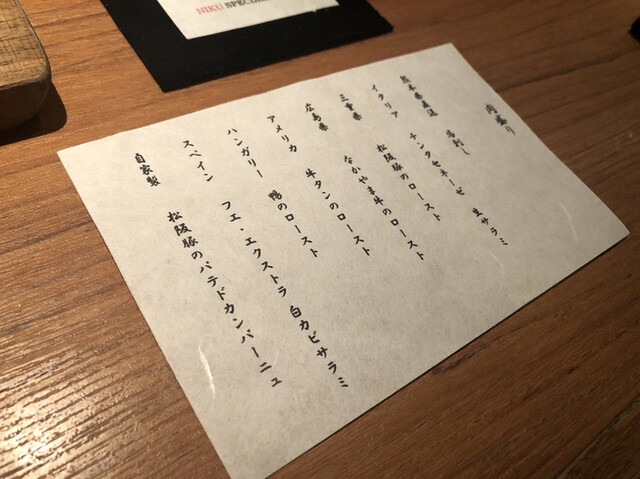 NIKU
肉盛り
熊本県直送 馬刺し
イタリア チンタセネーゼ 生サラミ
三重県 松阪豚のロースト
広島県 なかやま牛のロースト
アメリカ 牛タンのロースト
ハンガリー 鴨のロースト
スペイン フエ・エクストラ 白カビサラミ
自家製 松阪豚のパテドカンパーニュ